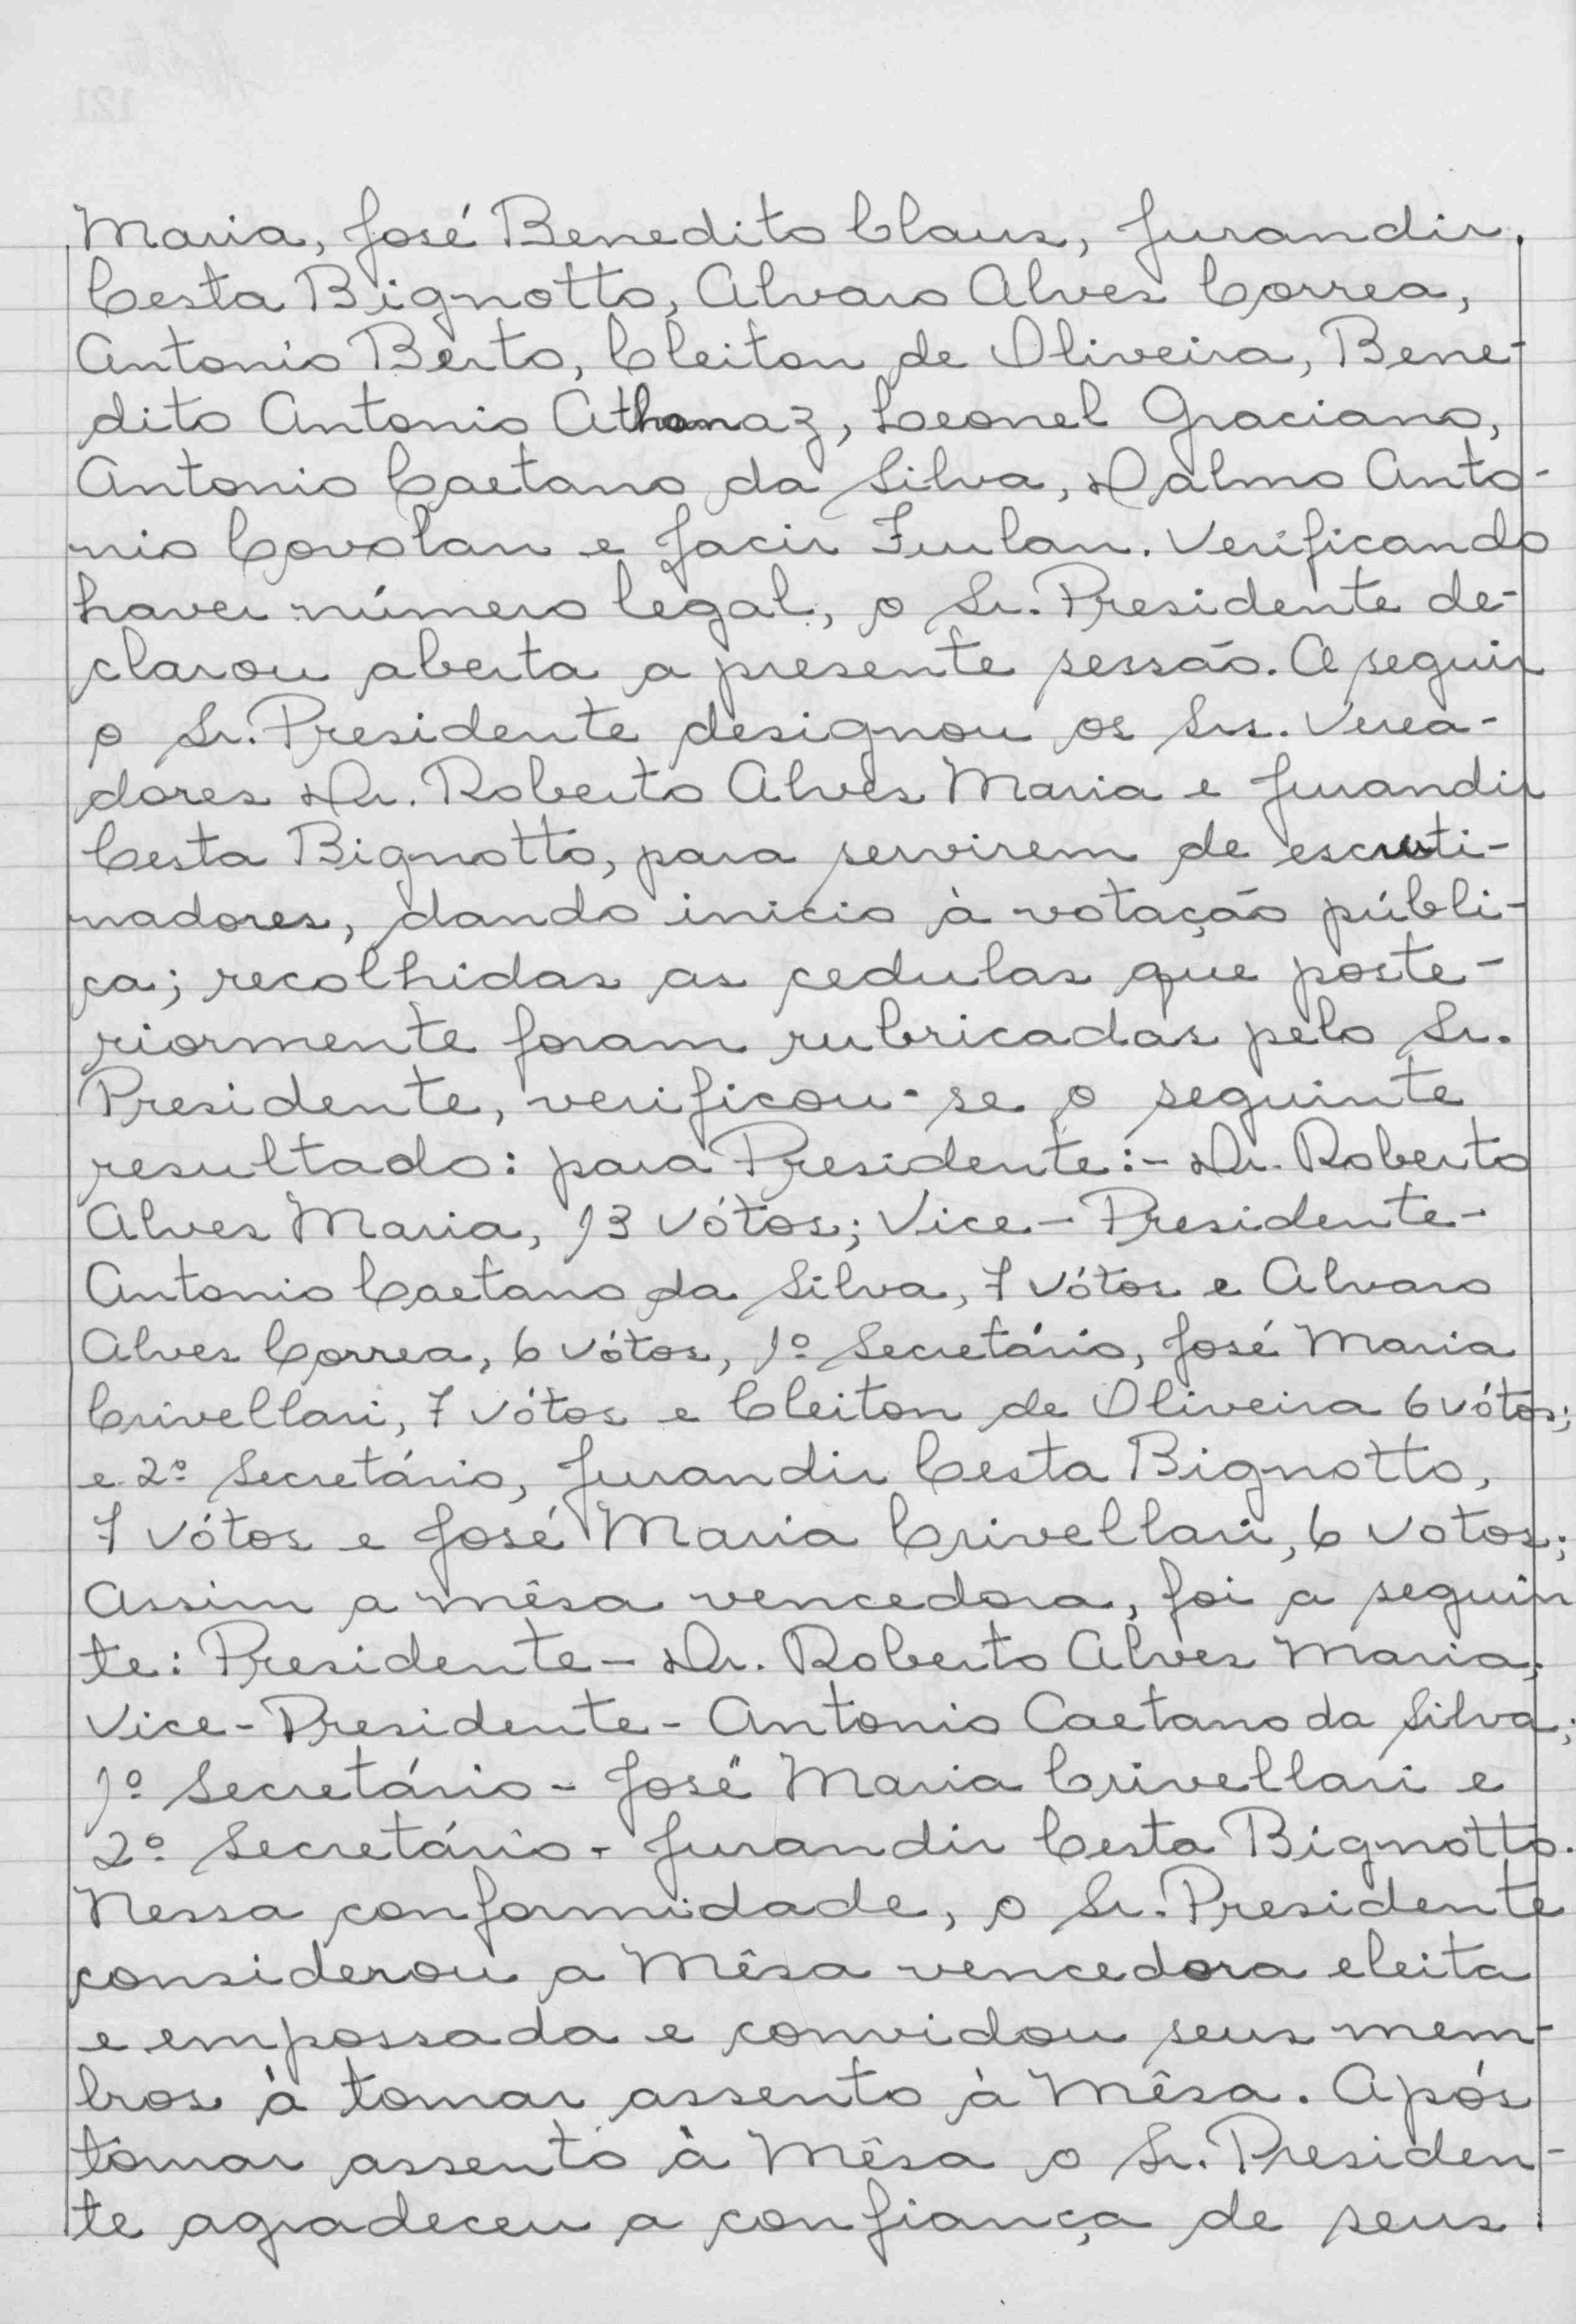 Maria, José Benedito Claus, Jurandir
Cesta Bignotto, Alvaro Alves Correa,
Antonio Berto, Cleiton de Oliveira, Bene-
dito Antonio Athanaz, Leonel Graciano,
Antonio Caetano da Silva, Dalmo Anto-
nio Covolan e Jacir Furlan. Verificando
haver número legal, o Sr. Presidente de-
clarou aberta a presente sessão. A seguir
o Sr. Presidente designou os Srs. Verea-
dores Dr. Roberto Alves Maria e Jurandir
Cesta Bignotto, para servirem de escruti-
nadores, dando inicio à votação públi-
ca; recolhidas as cedulas que poste-
riormente foram rubricadas pelo Sr.
Presidente, verificou-se o seguinte
resultado: para Presidente:- Dr. Roberto
Alves Maria, 13 vótos; Vice-Presidente-
Antonio Caetano da Silva, 7 vótos e Alvaro
Alves Correa, 6 vótos, 1º Secretário, José Maria
Crivellari, 7 vótos e Cleiton de Oliveira 6 vótos;
e 2º Secretário, Jurandir Cesta Bignotto,
7 vótos e José Maria Crivellari, 6 votos;
Assim a mêsa vencedora, foi a seguin
te: Presidente - Dr. Roberto Alves Maria;
Vice-Presidente - Antonio Caetano da Silva;
1º Secretário - José Maria Crivellari e
2º Secretário - Jurandir Cesta Bignotto.
Nessa conformidade, o Sr. Presidente
considerou a Mêsa vencedora eleita
e empossada e convidou seus mem-
bros à tomar assento à Mêsa. Após
tomar assento à Mêsa o Sr. Presiden-
te agradeceu a confiança de seus